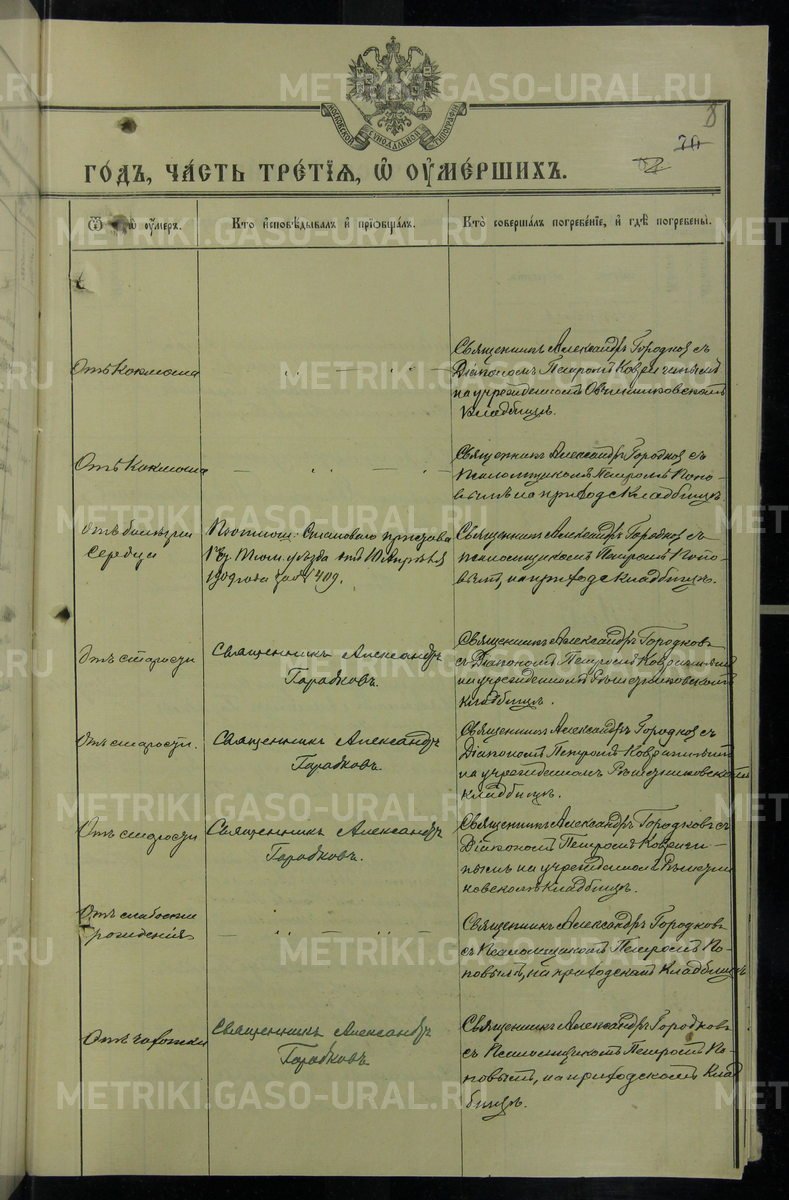 METRIKI.GASO-URAL.RU
МОСКОВСКОЙ СѴНОДАЛЬНОЙ ТИПОГРАФІИ
8
70
ГО́ДЪ, ЧА́СТЬ ТРЕ́ТІЯ, Ѿ ОУМЕ́РШИХЪ.
Кто̀ и҆сповѣ́дывалъ и҆ прїѡбща́лъ.
Кто̀ соверша́лъ погребе́нїе, и҆ гдѣ̀ погребены̀.
Отъ коклюша
Священникъ Александръ Городков съ
Діакономъ Петромъ
на учрежденномъ Овчинниковскомъ
кладбищѣ.
Отъ Коклюша
Священникъ Александръ Городков съ
Псаломщикомъ Петромъ Попо-
вымъ на приходс кладбищѣ.
Отъ болѣзни
сердца
Становаго пристава
Тюм. уѣзда
1909 года за № 409.
Священникъ Александръ Городков съ
псаломщикомъ Петромъ Попо-
вымъ, на приходс кладбищѣ.
Отъ старости
Священникъ Александръ
Городковъ.
Священникъ Александръ Городковъ
съ Діакономъ Петромъ
на учрежденномъ
кладбищѣ.
Отъ старости.
Священникъ Александръ
Городковъ.
Священникъ Александръ Городков съ
Діакономъ Петромъ
на учрежденномъ
кладбищѣ.
Отъ старости
Священникъ Александръ
Городковъ.
Священникъ Александръ Городковъ съ
Діакономъ Петромъ
на учрежденномъ
кладбищѣ.
Отъ слабости
рожденія
Священникъ Александръ Городковъ
съ Псаломщикомъ Петромъ По-
повымъ, на приходскомъ кладбищѣ
Отъ чахотки
Священникъ Александръ
Городковъ
Священникъ Александръ Городковъ
съ Псаломщикомъ Петромъ По-
повымъ, на приходскомъ клад
бищѣ.